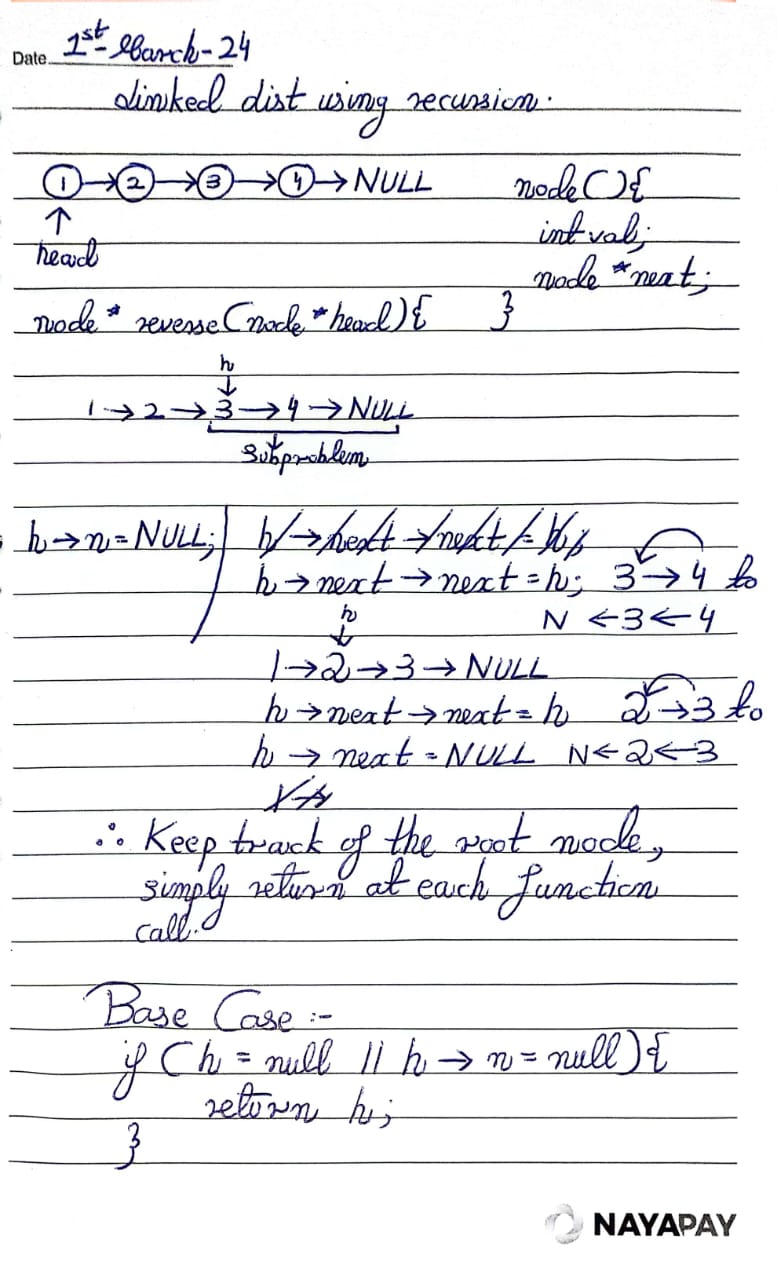 Date 1st March-24
Linked List using recursion.
1 → 2 → 3 → 4 → NULL
↑
head
node(){
int val;
node *next;
}
node * reverse(node *head){
h
↓
1 → 2 → 3 → 4 → NULL
Subproblem
h→n=NULL;
h→next→next=h;
h→next→next=h; 3→4 to
N ←3←4
h
↓
1→2→3→NULL
h→next→next=h 2→3 to
h→next=NULL N←2←3
∴ Keep track of the root node,
simply return at each function
call.
Base Case :-
if (h = null || h → n = null){
return h;
}
NAYAPAY